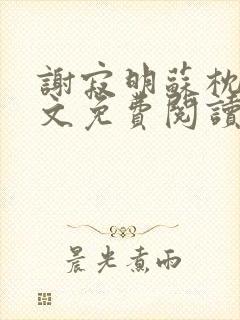 謝寂明蘇枕
文免費閱讀
晨光煮雨